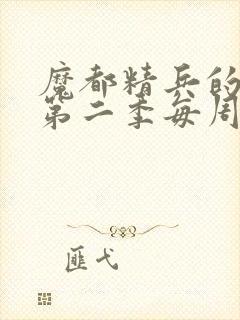 魔都精兵的
第二季每周
匪弋